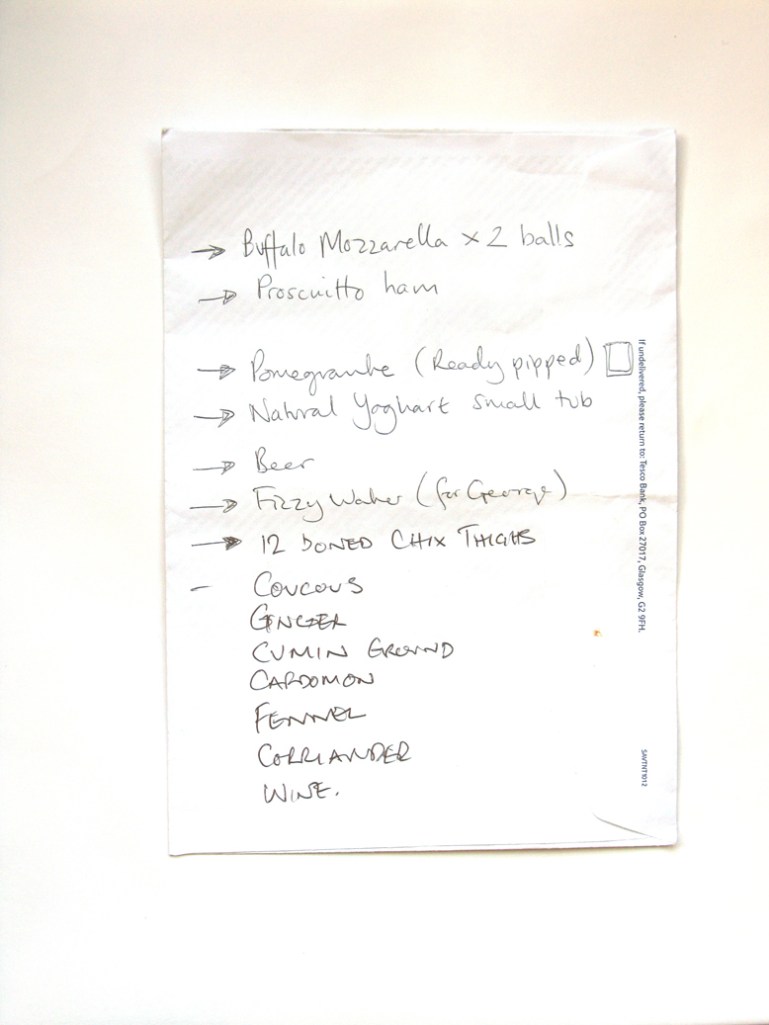 → Buffalo Mozzarella x 2 balls
→ Proscuitto ham
→ Pomegranate (Ready pipped)
→ Natural Yoghart small tub
→ Beer
→ Fizzy Water (for George)
→ 12 BONED CHIX THIGHS
– COUCOUS
GINGER
CUMIN GROUND
CARDOMON
FENNEL
CORRIANDER
WINE.
If undelivered, please return to: Tesco Bank, PO Box 27017, Glasgow, G2 9FH.
SAVTNT1012